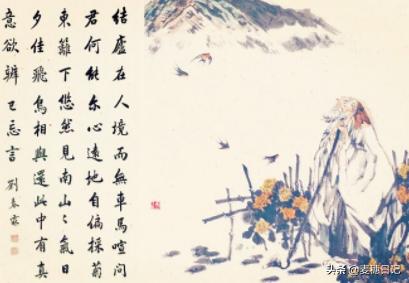 結廬在人境而無車馬喧問
君何能尔心遠地自偏採菊
東籬下悠然見南山々氣日
夕佳飛鳥相與還此中有真
意欲辨已忘言 劉春霖
头条